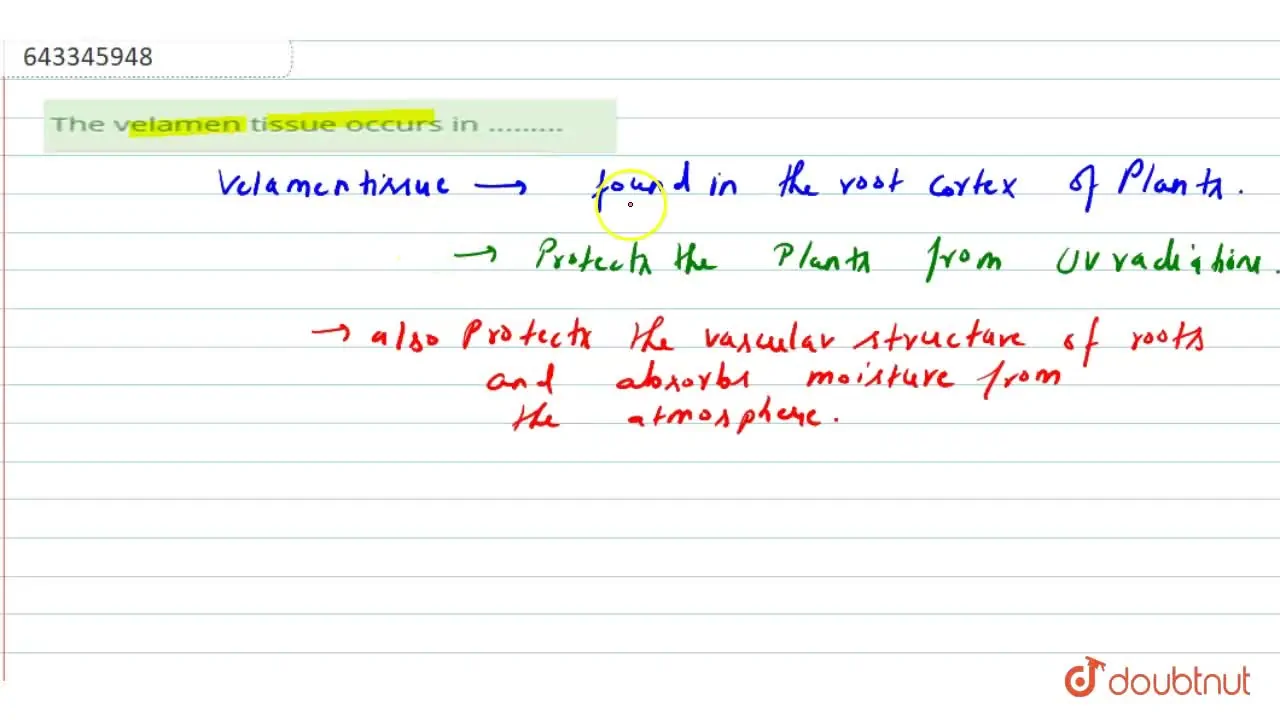 643345948
The velamen tissue occurs in .........
Velamen tissue → found in the root cortex of Plants.
→ Protects the Plants from UV radiations.
→ also Protects the vascular structure of roots
and absorbs moisture from
the atmosphere.
doubtnut